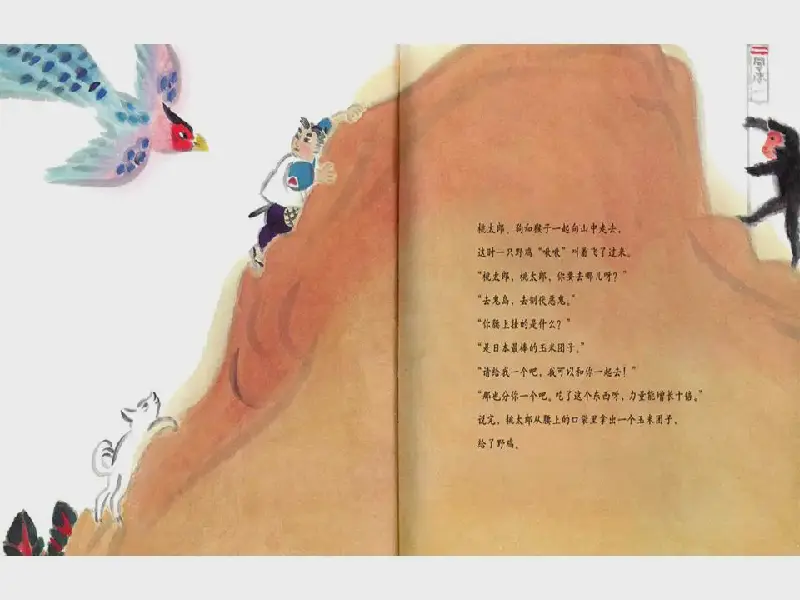 桃太郎、狗和猴子一起向山中走去，
这时一只野鸡“啾啾”叫着飞了过来。
“桃太郎，桃太郎，你要去哪儿呀？”
“去鬼岛，去制伏恶鬼。”
“你腰上挂的是什么？”
“是日本最棒的玉米团子。”
“请给我一个吧，我可以和你一起去！”
“那也分你一个吧。吃了这个东西呀，力量能增长十倍。”
说完，桃太郎从腰上的口袋里拿出一个玉米团子，
给了野鸡。